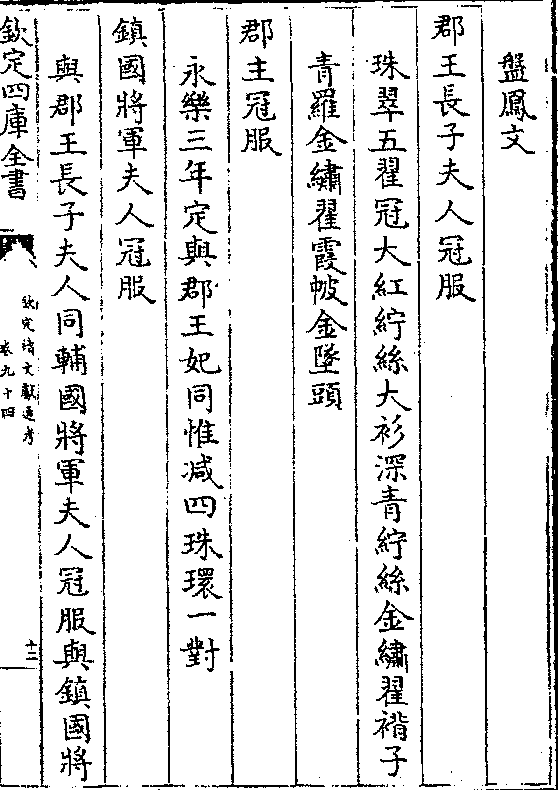 盤鳳文
郡王長子夫人冠服
珠翠五翟冠大紅紵絲大衫深青紵絲金繡翟褙子
青羅金繡翟霞帔金墜頭
郡主冠服
永樂三年定與郡王妃同惟减四珠環一對
鎮國將軍夫人冠服
與郡王長子夫人同輔國將軍夫人冠服與鎮國將
欽定四庫全書
欽定續文獻通考
卷九十四
十二